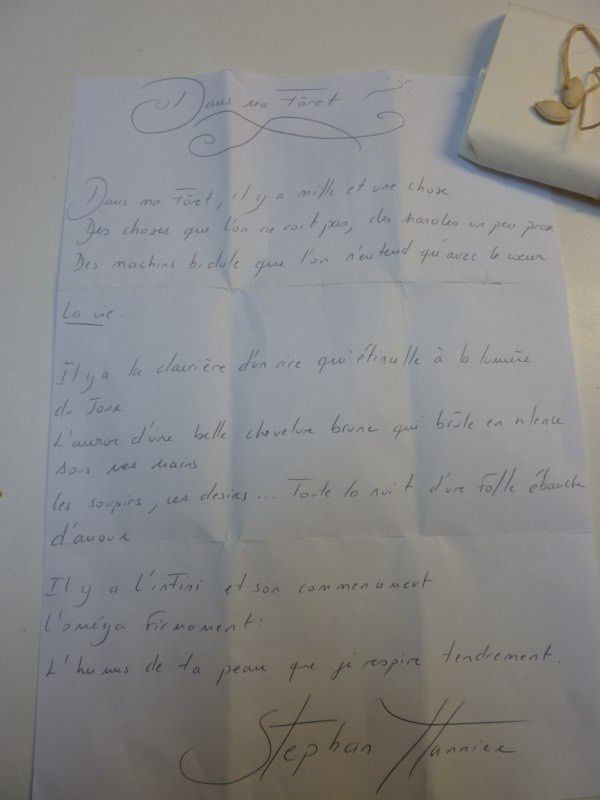 Dans ma Fôret
Dans ma Fôret, il y a mille et une chose
Des choses que l'on ne voit pas, des paroles un peu prose
Des machins bidule que l'on n'entend qu'avec le cœur
La vie.
Il y a la clairière d'un rire qui étincelle à la lumière
du Jour
L'auror d'une belle chevelure brune qui brûle en silence
sous mes mains
les soupirs, ces desirs... Toute la nuit d'une folle ébauche
d'amour
Il y a l'infini et son commencement
L'oméga firmament:
L'humus de ta peau que je respire tendrement.
Stephan